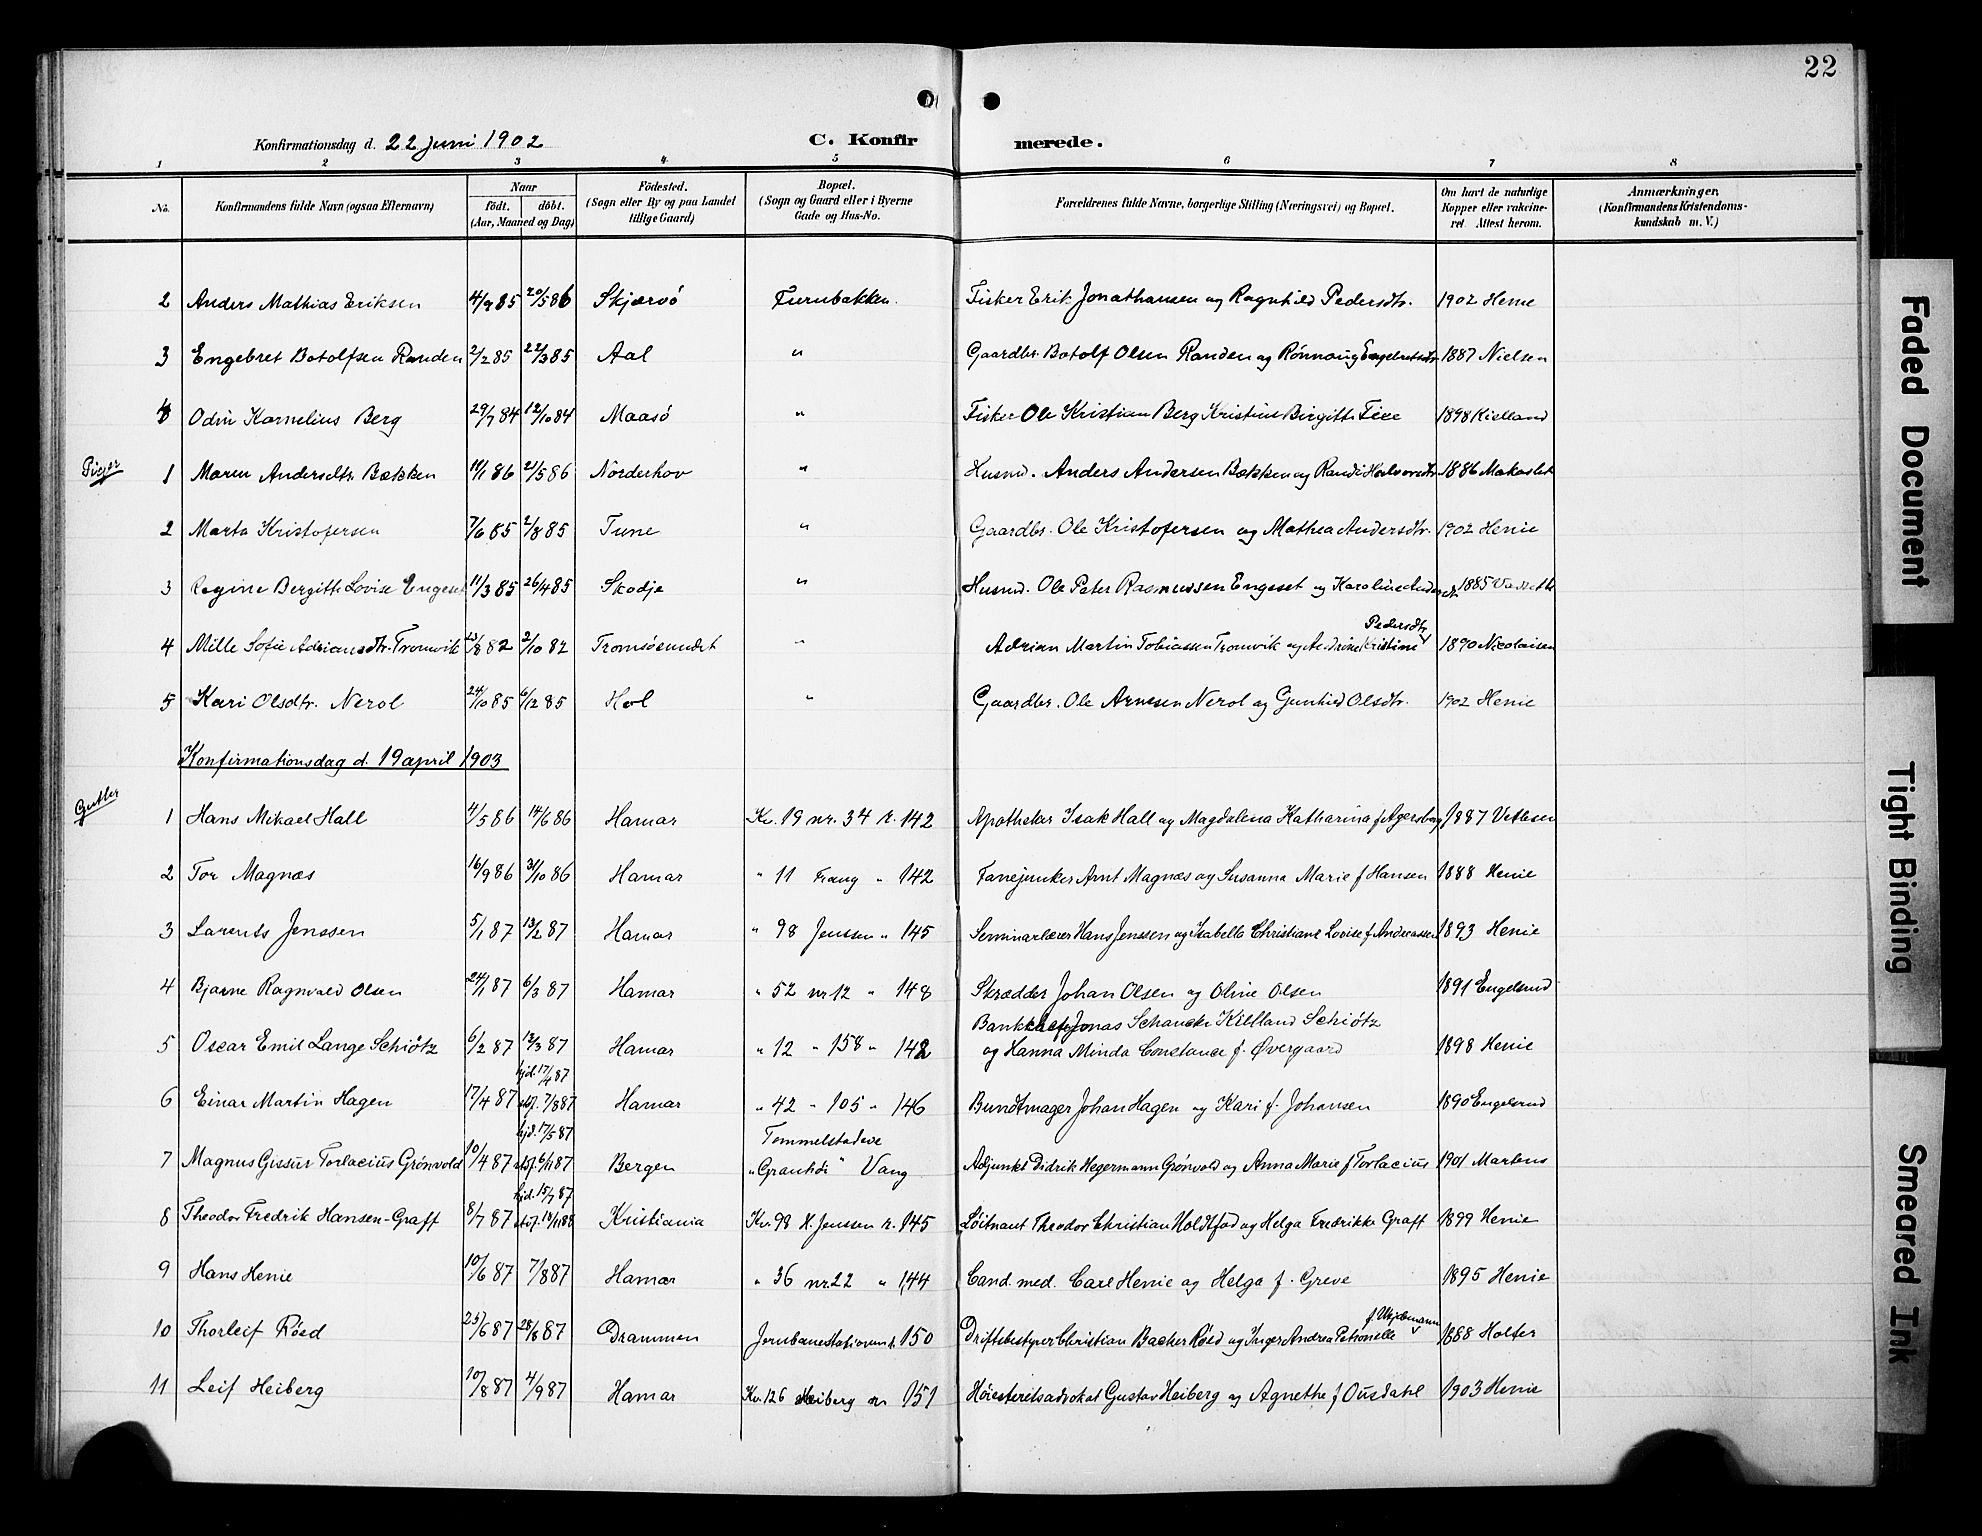 22
Konfirmationsdag d. 22 juni 1902 C. Konfirmerede.
1 2 3 4 5 6 7 8
No. Konfirmandens fulde Navn (ogsaa Efternavn) Naar födt. döbt. (Aar, Maaned og Dag) Födested. (Sogn eller By og paa Landet tillige Gaard) Bopæl. (Sogn og Gaard eller i Byerne Gade og Hus-No. Forældrenes fulde Navne, borgerlige Stilling (Næringsvei) og Bopæl. Om havt de naturlige Kopper eller vakcineret. Attest herom. Anmærkninger. (Konfirmandens Kristendomskundskab m. V.)
2 Anders Mathias Eriksen 4/9 85 20/5 86 Skjærvö Furubakken. Fisker Erik Jonathansen og Ragnhild Pedersdtr. 1902 Henie
3 Engebret Botolfsen Randen 2/2 85 22/3 85 Aal " Gaardbr. Botolf Olsen Randen og Rönnaug Engebretsdtr 1887 Nielsen
4 Odin Kornelius Berg 29/7 84 12/10 84 Maasö " Fisker Ole Kristian Berg Kristine Birgitte 1898 Kielland
Piger
1 Maren Andersdtr. Bækken 11/1 86 2/5 86 Norderhov " Husmd. Anders Andersen Bækken og Randi Halvorsdtr 1886
2 Marta Kristofersen 7/6 85 2/8 85 Tune " Gaardbr. Ole Kristofersen og Mathea Andersdtr. 1902 Henie
3 Regine Bergitte Lovise Engeset 11/3 85 26/4 85 Skodje " Husmd. Ole Peter Rasmussen Engeset og Karoline 1885
4 Mille Sofie Adriansdtr. Tromvik 23/8 82 2/10 82 Tromsösundet " Adrian Martin Tobiassen Tromvik og Kristine Pedersdtr 1890 Nicolaisen
5 Kari Olsdtr. Nerol 24/10 85 6/12 85 Hol " Gaardbr. Ole Arnesen Nerol og Gunhild Olsdtr. 1902 Henie
Konfirmationsdag d. 19 april 1903
Gutter
1 Hans Mikael Hall 4/5 86 14/6 86 Hamar Kv. 19 nr. 34 r. 142 Apotheker Isak Hall og Magdalena Katharina f. Agersborg 1887 Vetlesen
2 Tor Magnæs 16/9 86 31/10 86 Hamar " 11 Frang " 142 Fanejunker Arnt Magnæs og Susanna Marie f Hansen 1888 Henie
3 Larents Jenssen 5/1 87 13/2 87 Hamar " 98 Jenssen " 145 Seminarlærer Hans Jenssen og Isabella Christiane Lovise f Andreassen 1893 Henie
4 Bjarne Ragnvald Olsen 24/1 87 6/3 87 Hamar " 52 nr. 12 " 148 Skrædder Johan Olsen og Oline Olsen 1891 Engelsrud
5 Oscar Emil Lange Schiötz 6/2 87 13/3 87 Hamar " 12 " 158 " 142 Bankchef Jonas Schancke Kielland Schiötz
og Hanna Minda Constance f. Övergaard 1898 Henie
6 Einar Martin Hagen 17/4 87 hjd. 17/4 87 stf. 7/8 87 Hamar " 42 " 105 " 146 Bundtmager Johan Hagen og Kari f. Johansen 1890 Engelsrud
7 Magnus Gissur Torlacius Grönvold 10/4 87 hjd. 17/5 87 stf. 6/11 87 Bergen Tommelstadeie " Granhöi " Vang Adjunkt Didrik Hegermann Grönvold og Anna Marie f Torlacius 1901 Martens
8 Theodor Fredrik Hansen-Graff 8/7 87 hjd. 15/7 87 Kristiania Kv. 98 H. Jenssen r. 145 Löitnant Theodor Christian Holdtfod og Helga Fredrikke Graff 1899 Henie
9 Hans Henie 10/6 87 7/8 87 Hamar " 36 nr. 22 " 144 Cand. med. Carl Henie og Helga f. Greve 1895 Henie
10 Thorleif Röed 25/6 87 28/8 87 Drammen Jernbanestationen r. 150 Driftsbestyrer Christian Backer Röed og Inger Andrea Petronelle 1888 Holter
11 Leif Heiberg 10/8 87 4/9 87 Hamar Kv. 126 Heiberg nr 151 Höiesteretsadvokat Gustav Heiberg og Agnethe f Ousdahl 1903 Henie
Faded Document
Tight Binding
Smeared Ink